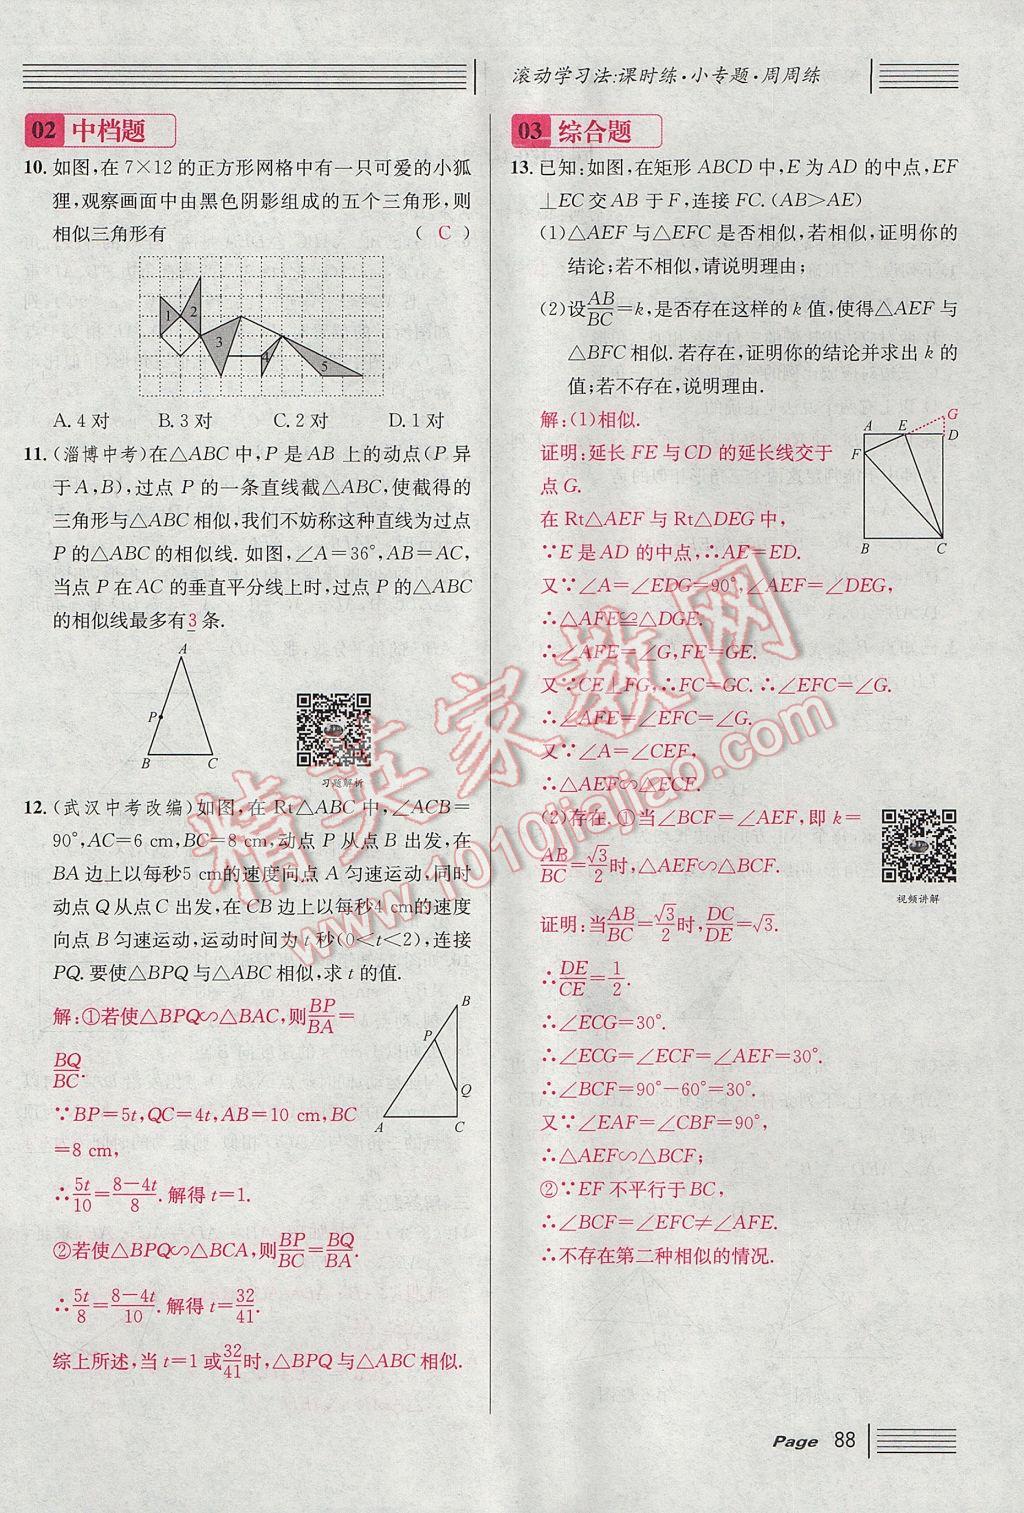 滚动学习法:课时练·小专题·周周练
02 中档题
10. 如图,在 7×12 的正方形网格中有一只可爱的小狐
狸,观察画面中由黑色阴影组成的五个三角形,则
相似三角形有 ( C )
1
2
3
4
5
A. 4 对 B. 3 对 C. 2 对 D. 1 对
11. (淄博中考)在△ABC 中,P 是 AB 上的动点(P 异
于 A,B),过点 P 的一条直线截△ABC,使截得的
三角形与△ABC 相似,我们不妨称这种直线为过点
P 的△ABC 的相似线. 如图,∠A=36°,AB=AC,
当点 P 在 AC 的垂直平分线上时,过点 P 的△ABC
的相似线最多有 3 条.
A
P
B C
习题解析
12. (武汉中考改编)如图,在 Rt△ABC 中,∠ACB=
90°,AC=6 cm,BC=8 cm,动点 P 从点 B 出发,在
BA 边上以每秒5 cm的速度向点 A 匀速运动,同时
动点 Q 从点 C 出发,在 CB 边上以每秒4 cm的速度
向点 B 匀速运动,运动时间为 t 秒(0<t<2),连接
PQ. 要使△BPQ 与△ABC 相似,求 t 的值.
解:①若使△BPQ∽△BAC,则BP/BA=
BQ/BC.
∵BP=5t,QC=4t,AB=10 cm,BC
=8 cm,
∴5t/10=(8-4t)/8. 解得 t=1.
②若使△BPQ∽△BCA,则BP/BC=BQ/BA.
∴5t/8=(8-4t)/10. 解得 t=32/41.
综上所述,当 t=1 或32/41时,△BPQ 与△ABC 相似.
B
P
Q
A C
03 综合题
13. 已知:如图,在矩形 ABCD 中,E 为 AD 的中点,EF
⊥EC 交 AB 于 F,连接 FC. (AB>AE)
(1)△AEF 与△EFC 是否相似,若相似,证明你的
结论;若不相似,请说明理由;
(2)设AB/BC=k,是否存在这样的 k 值,使得△AEF 与
△BFC 相似. 若存在,证明你的结论并求出 k 的
值;若不存在,说明理由.
解:(1)相似.
证明:延长 FE 与 CD 的延长线交于
点 G.
在 Rt△AEF 与 Rt△DEG 中,
∵E 是 AD 的中点,∴AE=ED.
又∵∠A=∠EDG=90°,∠AEF=∠DEG,
∴△AEF≌△DGE.
∴∠AFE=∠G,FE=GE.
又∵CE⊥FG,∴FC=GC. ∴∠EFC=∠G.
∴∠AFE=∠EFC=∠G.
又∵∠A=∠CEF,
∴△AEF∽△ECF.
(2)存在. ①当∠BCF=∠AEF,即 k=
AB/BC=√3/2时,△AEF∽△BCF.
证明:当AB/BC=√3/2时,DC/DE=√3.
∴DE/CE=1/2.
∴∠ECG=30°.
∴∠ECG=∠ECF=∠AEF=30°.
∴∠BCF=90°-60°=30°.
又∵∠EAF=∠CBF=90°,
∴△AEF∽△BCF;
②∵EF 不平行于 BC,
∴∠BCF=∠EFC≠∠AFE.
∴不存在第二种相似的情况.
G
A E D
F
B C
视频讲解
精英家教网
www.1010jiajiao.com
Page 88